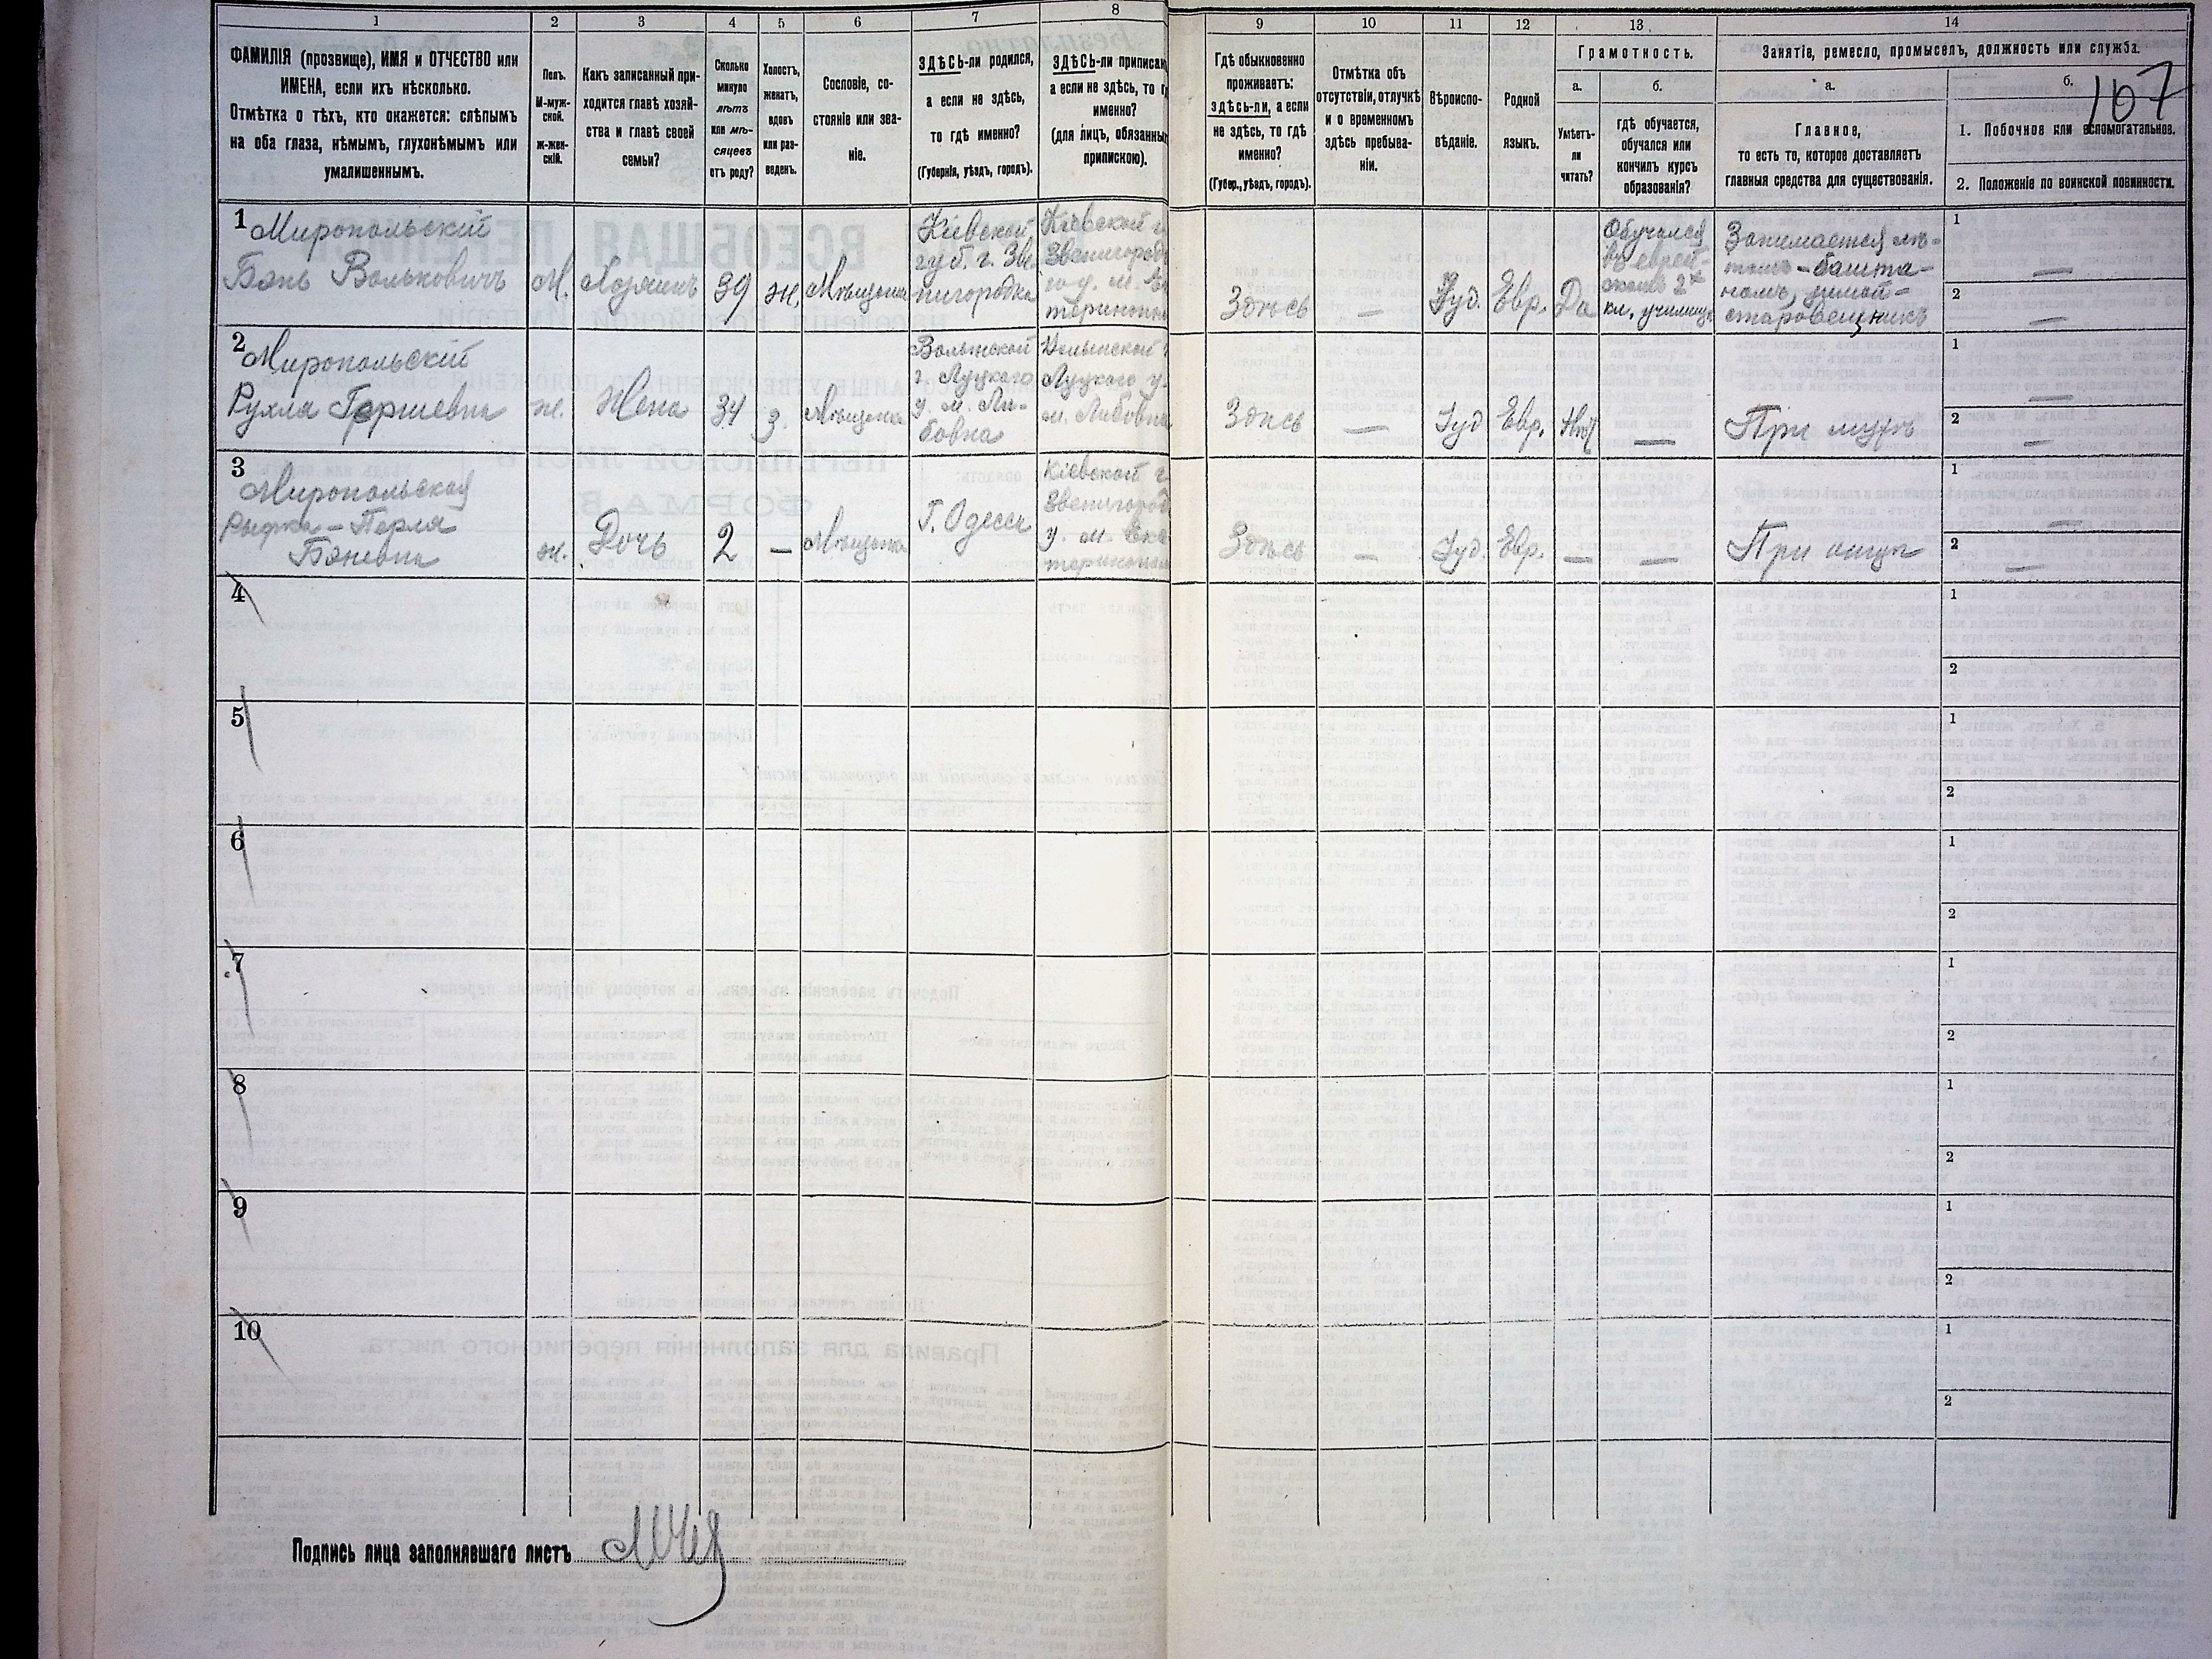 1
2
3
4
5
6
7
8
9
10
11
12
13
14
ФАМИЛІЯ (прозвище), ИМЯ и ОТЧЕСТВО или
ИМЕНА, если ихъ нѣсколько.
Отмѣтка о тѣхъ, кто окажется: слѣпымъ
на оба глаза, нѣмымъ, глухонѣмымъ или
умалишеннымъ.
Полъ.
М-муж-
ской.
ж-жен-
скій.
Какъ записанный при-
ходится главѣ хозяй-
ства и главѣ своей
семьи?
Сколько
минуло
лѣтъ
или мѣ-
сяцевъ
отъ роду?
Холостъ,
женатъ,
вдовъ
или раз-
веденъ.
Сословіе, со-
стояніе или зва-
ніе.
ЗДѢСЬ-ли родился,
а если не здѣсь,
то гдѣ именно?
(Губернія, уѣздъ, городъ).
ЗДѢСЬ-ли приписан
а если не здѣсь, то г
именно?
(для лицъ, обязанны
припискою).
Гдѣ обыкновенно
проживаетъ:
здѣсь-ли, а если
не здѣсь, то гдѣ
именно?
(Губер., уѣздъ, городъ).
Отмѣтка объ
отсутствіи, отлучкѣ
и о временномъ
здѣсь пребыва-
ніи.
Вѣроиспо-
вѣданіе.
Родной
языкъ.
Грамотность.
а.
Умѣетъ-
ли
читать?
б.
гдѣ обучается,
обучался или
кончилъ курсъ
образованія?
Занятіе, ремесло, промыселъ, должность или служба.
а.
Главное,
то есть то, которое доставляетъ
главныя средства для существованія.
б.
107
1. Побочное или вспомогательное.
2. Положеніе по воинской повинности.
1
Миропольскій
Бэнь Вольковичъ
М.
Хозяинъ
39
ж.
Мѣщанин
Кіевской
губ. г. Зве
нигородка
Кіевской г.
Звенигород
м.
Здѣсь
—
Іуд.
Евр.
Да
Обучался
въ еврей-
2х
кл. училищ
Занимается лѣ-
томъ - башта-
номъ, зимой -
старовещникъ
1
—
2
—
2
Миропольскій
Рухля Гершевна
ж.
Жена
34
з.
Мѣщанка
Волынской
г. Луцкого
у. м. Ли-
бовка
Волынской г
Луцкого у.
м. Либовка
Здѣсь
—
Іуд
Евр.
Нѣт
—
При мужѣ
1
—
2
—
3
Миропольская
Рыфка - Перля
Бэневна
ж.
Дочь
2
—
Мѣщанка
Г. Одесса
Кіевской г
Звенигород
у. м. Ека
терикопол
Здѣсь
—
Іуд.
Евр.
—
—
При отцѣ
1
—
2
—
4
1
2
5
1
2
6
1
2
7
1
2
8
1
2
9
1
2
10
1
2
Подпись лица заполнявшаго листъ